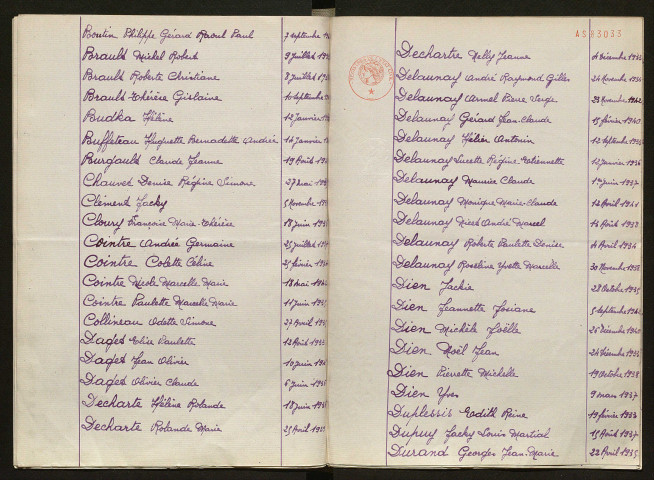 Boutin Philippe Gérard Raoul Paul 7 septembre
Brault Michel Robert 9 juillet
Brault Roberte Christiane 8 juillet
Brault Thérèse Gislaine 10 septembre
Budka Hélène 12 janvier
Buffeteau Huguette Bernadette Andrée 14 janvier
Burgault Claude Jeanne 19 Août
Chauvet Denise Régine Simone 27 mai
Clément Jacky 5 Novembre
Cloury Françoise Marie-Thérèse 18 juin
Cointre Andrée Germaine 25 juillet
Cointre Colette Céline 21 février
Cointre Nicole Marcelle Marie 18 mai
Cointre Paulette Marcelle Marie 11 juin
Collineau Odette Simone 27 Avril
Daget Elise Paulette 12 Août
Daget Jean Olivier 10 juin
Daget Olivier Claude 6 juin
Decharte Hélène Rolande 18 juin
Decharte Rolande Marie 25 Avril
AS83033
Dechartre Nelly Jeanne Décembre
Delaunay André Raymond Gilles 24 Novembre
Delaunay Armel Pierre Serge 23 Novembre 1942
Delaunay Gérard Jean-Claude 15 février 1940
Delaunay Hélier Antonin 12 septembre
Delaunay Lucette Régine Etiennette 12 janvier 1936
Delaunay Maurice Claude 1er juin 1937
Delaunay Monique Marie-Claude 12 Avril 1941
Delaunay André Marcel 14 Août 1938
Delaunay Roberte Paulette Denise 4 Avril 1934
Delaunay Roseline Yvette Marcelle 30 Novembre 1938
Dien Jackie 28 Octobre 1935
Dien Jeannette Josiane 5 septembre
Dien Michèle Joëlle 25 Décembre
Dien Noël Jean 24 Décembre
Dien Pierrette Michelle 19 Octobre 1938
Dien Yves 9 mars 1937
Duplessis Edith Reine 19 février 1933
Dupuy Jacky Louis Martial 15 Août 1937
Durand Georges Jean-Marie 22 Avril 1935